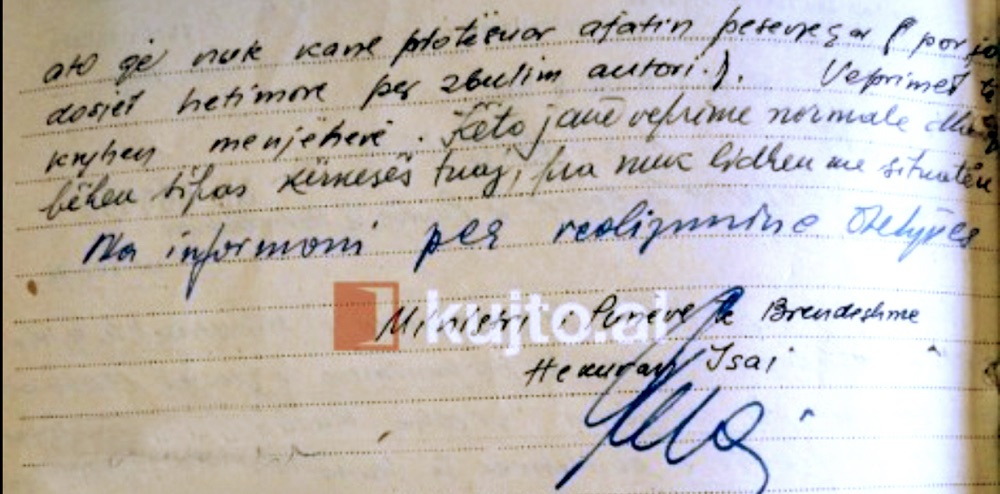 ato që nuk kane plotësuar afatin pesevjeçar (por jo
dosjet hetimore per zbulim autori.). Veprimet të
kryhen menjëherë. Këto janë veprime normale dhe
bëhen sipas kërkesës tuaj, pra nuk lidhen me situatën
Na informoni per realizimine detyrës
kujto.al
Ministri i Puneve te Brendeshme
Hekuran Isai